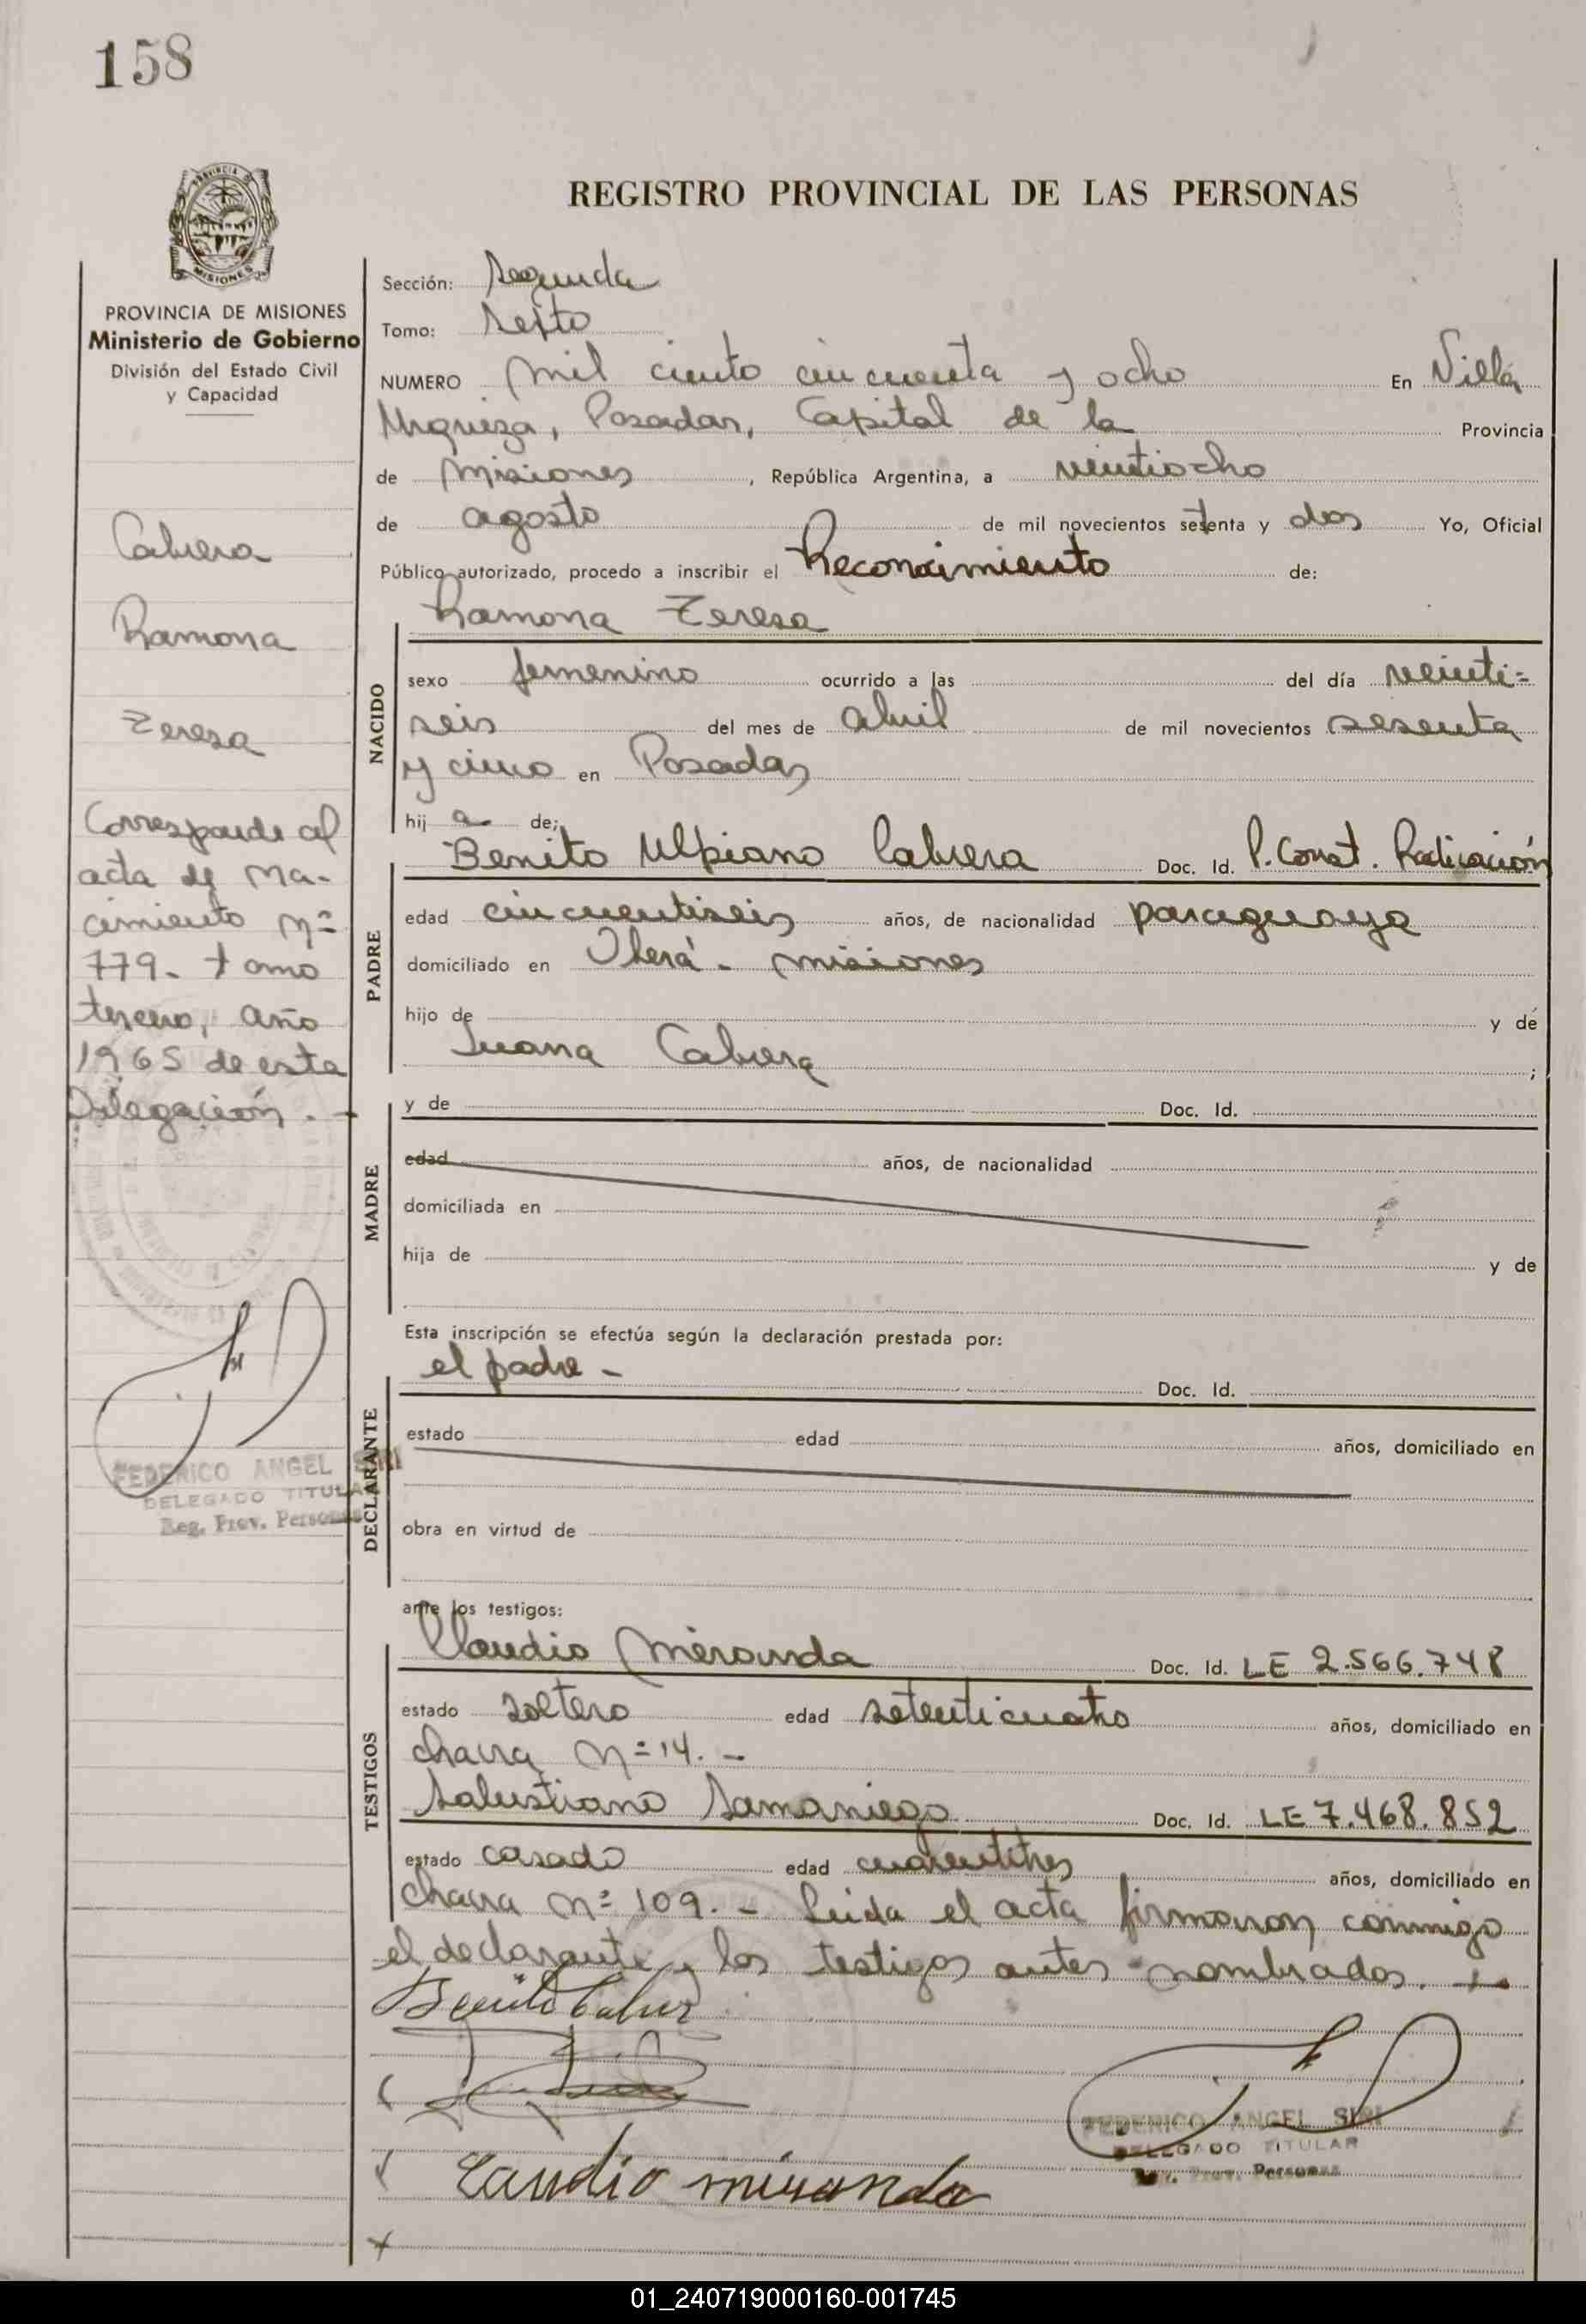 158
PROVINCIA DE MISIONES
MISIONES
PROVINCIA DE MISIONES
Ministerio de Gobierno
División del Estado Civil
y Capacidad
Cabrera
Ramona
Teresa
Corresponde al
acta de Na-
cimiento Nº
779 - tomo
tercero, año
1965 de esta
Delegación. -
FEDERICO ANGEL SIRI
DELEGADO TITULAR
Reg. Prov. Personas
REGISTRO PROVINCIAL DE LAS PERSONAS
Sección: Segunda
Tomo: Sexto
NUMERO Mil ciento cincuenta y ocho En Villa
Urquiza, Posadas, Capital de la Provincia
de Misiones, República Argentina, a veintiocho
de agosto de mil novecientos setenta y dos Yo, Oficial
Público autorizado, procedo a inscribir el Reconocimiento de:
Ramona Teresa
NACIDO
sexo femenino ocurrido a las del día veinti-
seis del mes de abril de mil novecientos sesenta
y cinco en Posadas
hij a de:
PADRE
Benito Ulpiano Cabrera Doc. Id. P. Const. Radicación
edad cincuentiseis años, de nacionalidad paraguaya
domiciliado en Oberá - Misiones
hijo de y de
Juana Cabrera ;
MADRE
y de Doc. Id.
edad años, de nacionalidad
domiciliada en
hija de y de
Esta inscripción se efectúa según la declaración prestada por:
DECLARANTE
el padre - Doc. Id.
estado edad años, domiciliado en
obra en virtud de
ante los testigos:
TESTIGOS
Claudio Miranda Doc. Id. LE 2.566.748
estado soltero edad setenticuatro años, domiciliado en
chacra Nº 14. -
Salustiano Samaniego Doc. Id. LE 7.468.852
estado casado edad cuarentitres años, domiciliado en
chacra Nº 109. - Leida el acta firmaron conmigo
el declarante y los testigos antes nombrados. -
Benito Cabrera
Claudio miranda
FEDERICO ANGEL SIRI
DELEGADO TITULAR
Reg. Prov. Personas
01_240719000160-001745